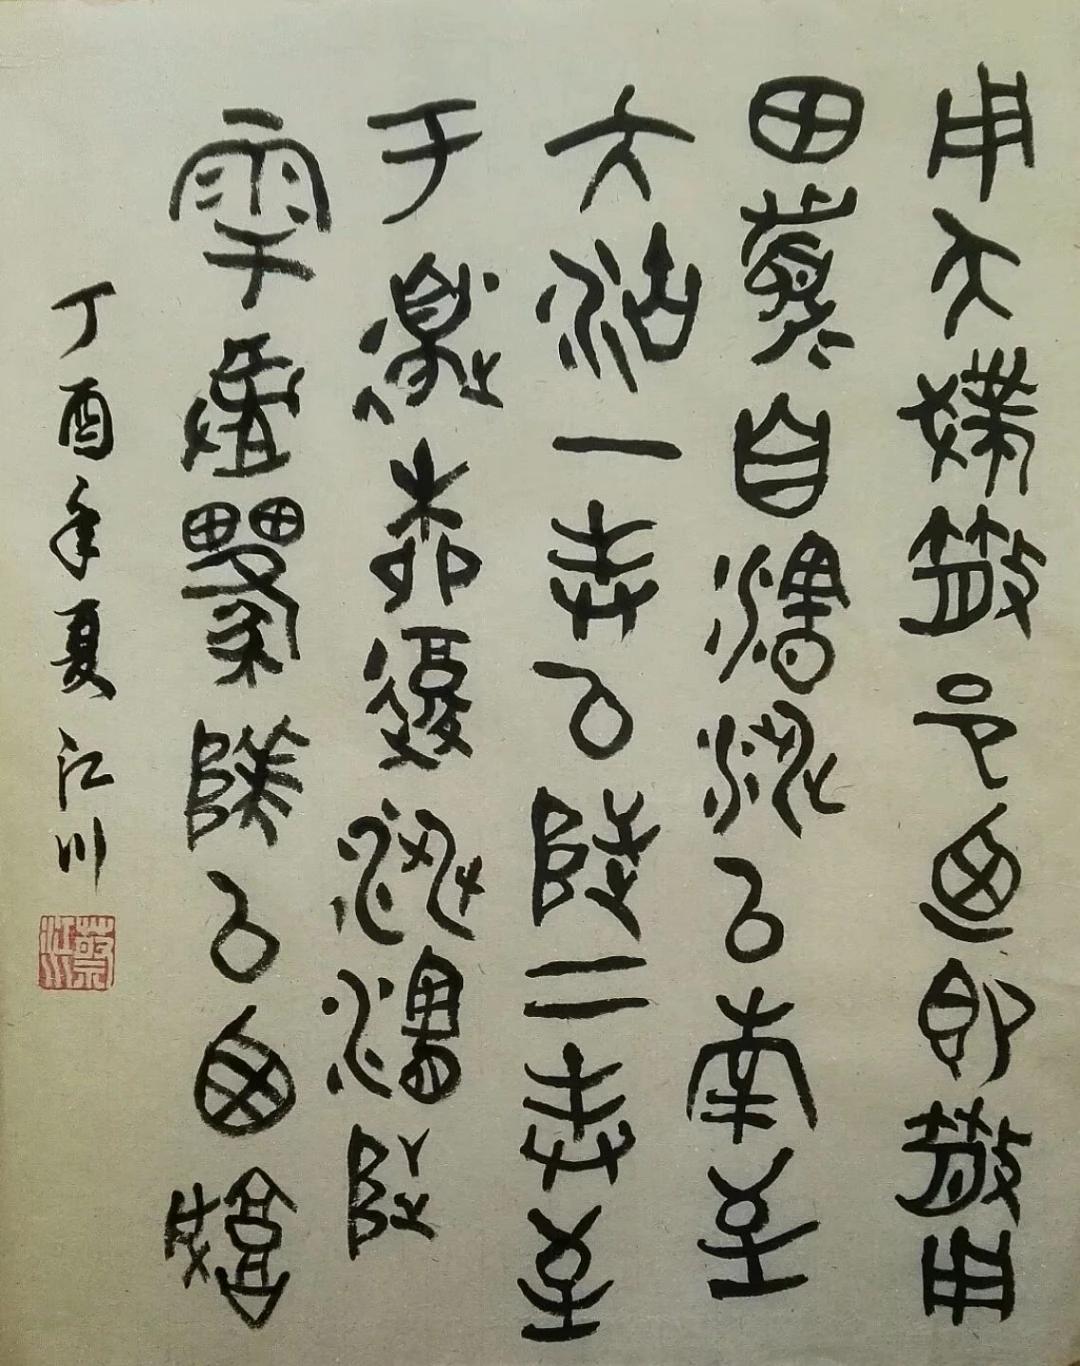 用夨散邑迺即散用
田眉自瀗涉以南至
大沽一封以陟二封至
于邊柳復涉瀗陟
雩以西
丁酉年夏江川